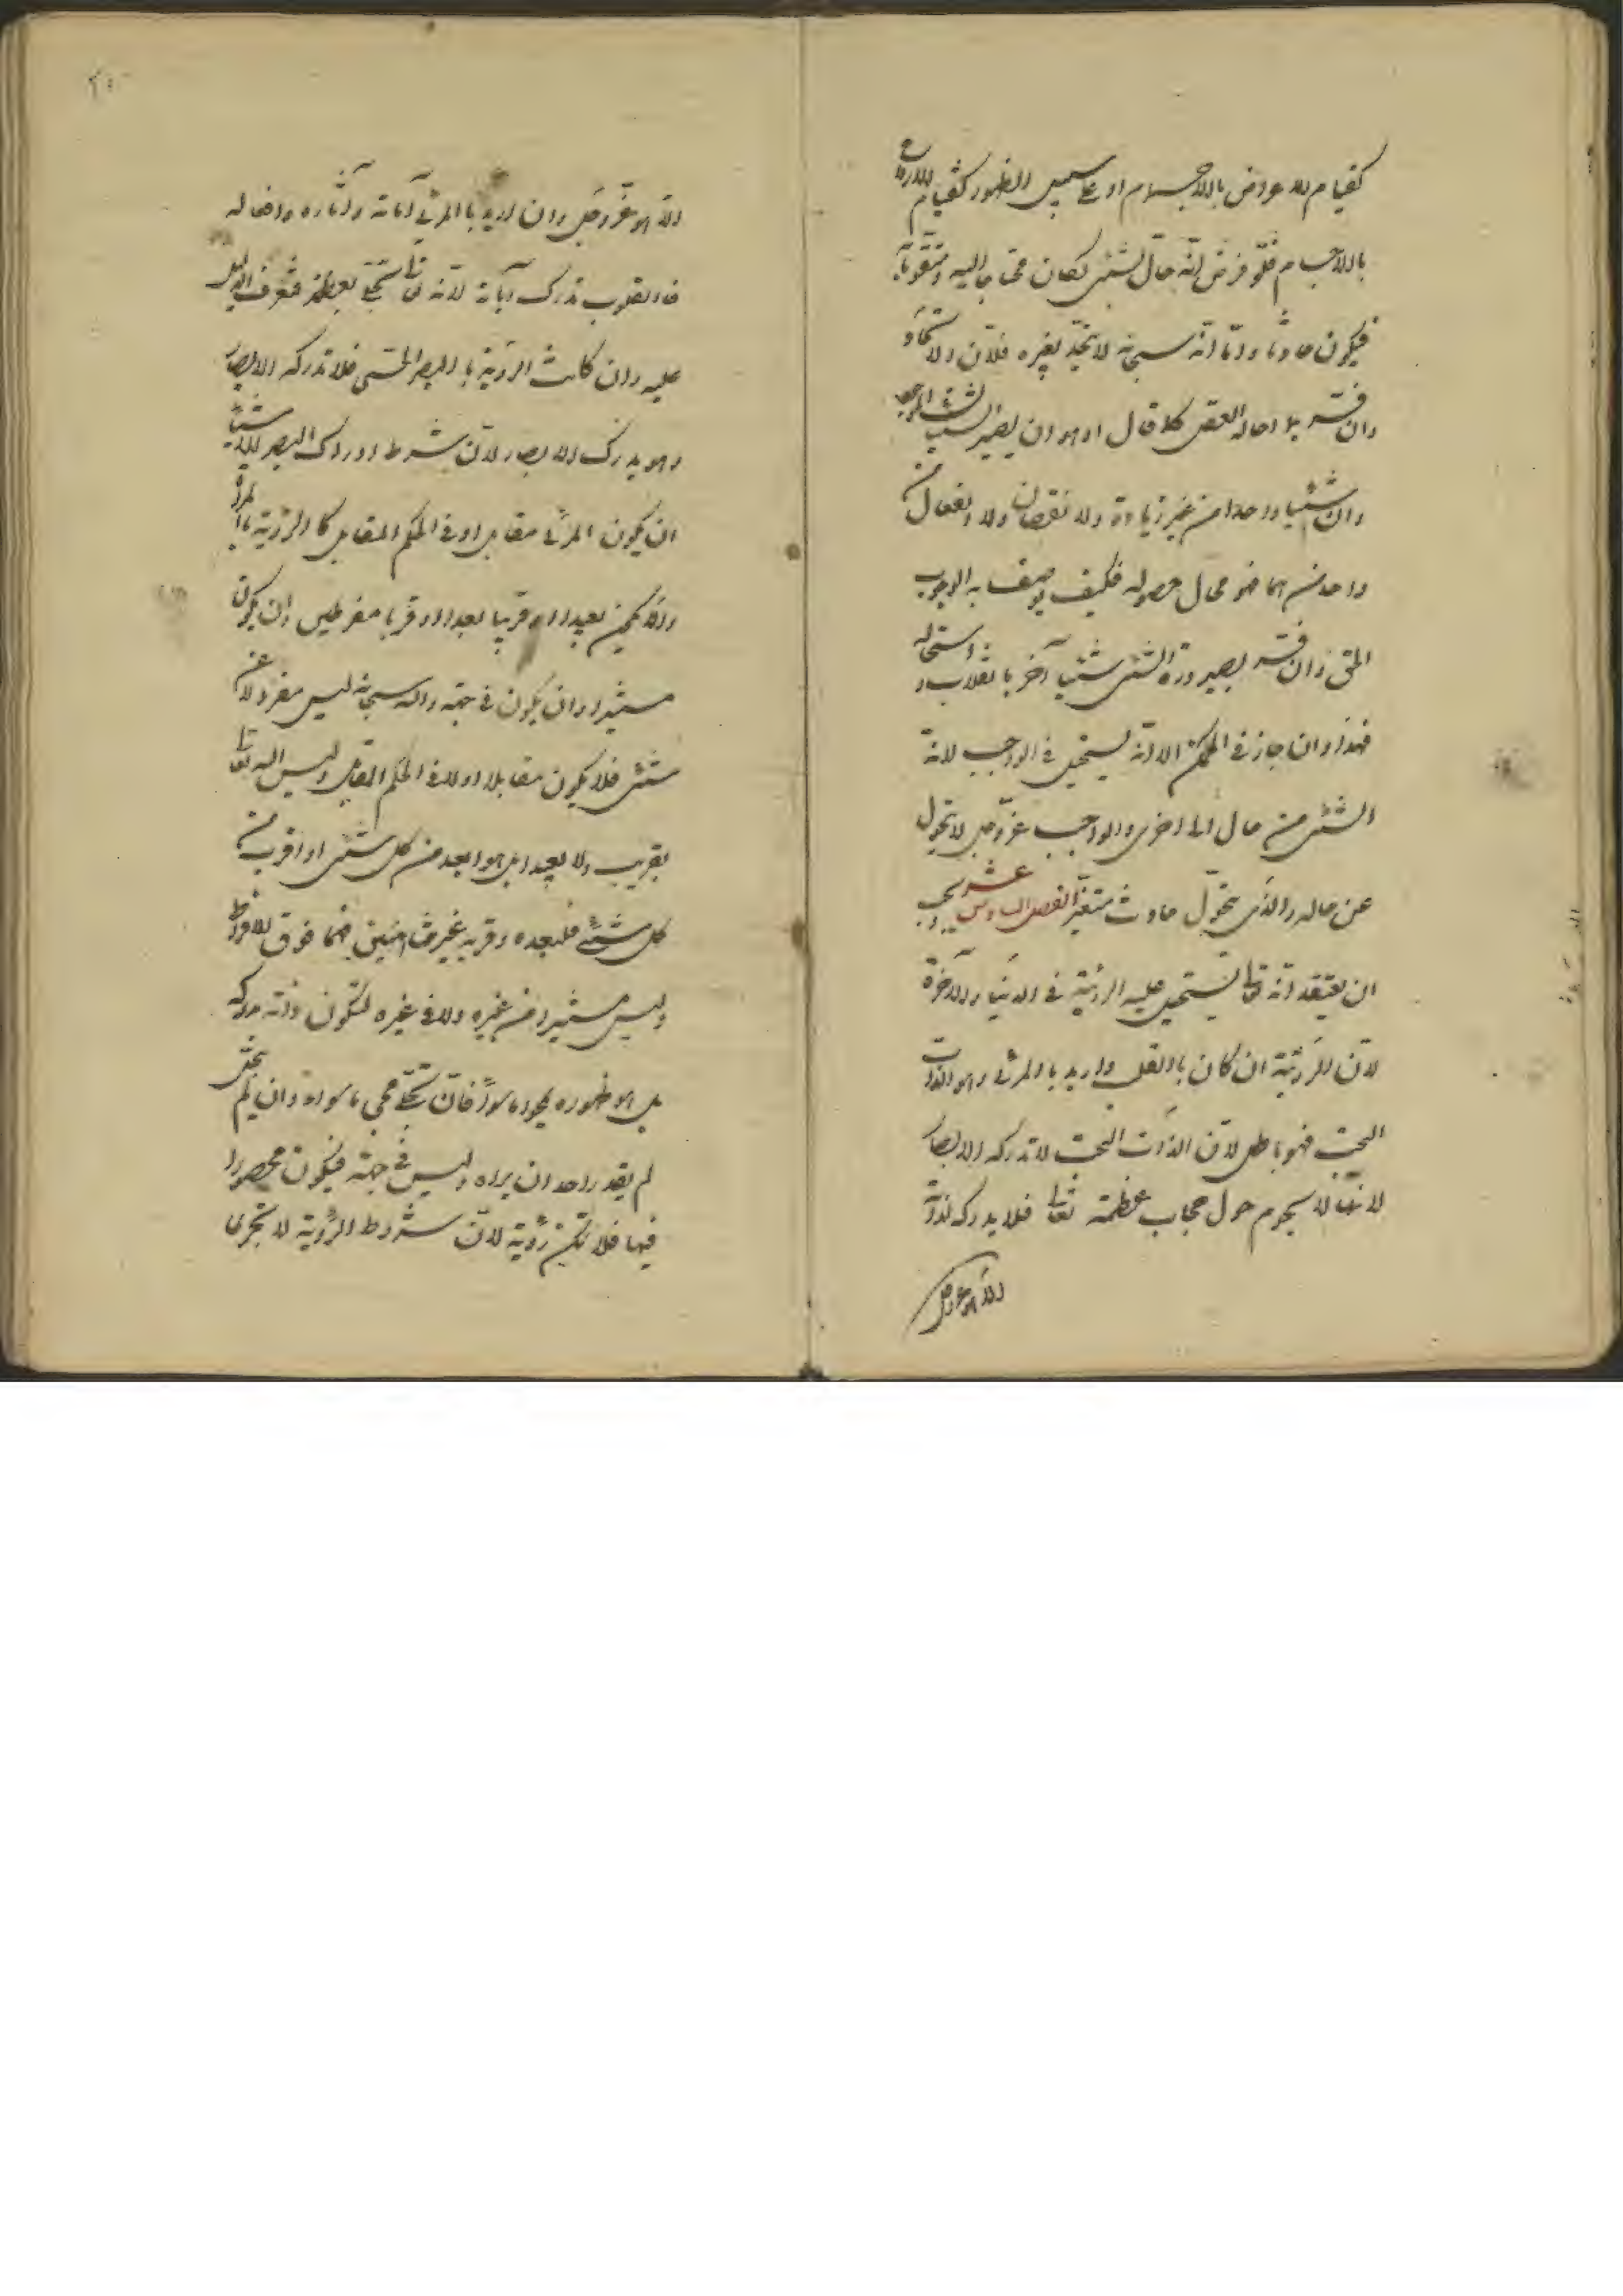 كقيام الاعراض بالاجسام او على سبيل الظهور كقيام الارواح
بالاجسام فلو فرض انه حال بشئ لكان محتاجا اليه ومتقوما به
فيكون حادثا واما انه سبحانه لا يتحد بغيره فلان الاتحاد
ان فسر بما احاله العقل كما قال او هو ان يصير الشيئان الموجودان
شيئا واحدا من غير زيادة ولا نقصان ولا انفعال من
واحد منهما فهو محال حصوله فكيف يوصف به الواجب
الحق وان فسر بصيرورة الشئ شيئا آخر بانقلاب او استحالة
فهذا وان جاز في الممكن الا انه يستحيل في الواجب لانه
الشئ من حال الى اخرى والواجب عز وجل لا يتحول
عن حاله والذي يتحول حادث متغير الفصل السادس عشر يجب
ان يعتقد انه تعالى يستحيل عليه الرؤية في الدنيا والآخرة
لان الرؤية ان كان بالقلب واريد بالمرئي وهو الذات
البحت فهو باطل لان الذات البحت لا تدركه الابصار
لانها لا تحوم حول حجاب عظمته تعالى فلا يدرك ذاته
الا هو عز وجل
الا هو عز وجل وان اريد بالمرئي آياته وآثاره وافعاله
فالقلوب تدرك آياته لانه تعالى تجلى بعظمته
عليه وان كانت الرؤية بالبصر الحسي فلا تدركه الابصار
وهو يدرك الابصار لان شرط ادراك البصر للاشياء
ان يكون المرئي مقابلا او في الحكم المقابل كالرؤية بالمرآة
والا يكون بعيدا او قريبا بعدا او قربا مفرطين وان يكون
مستنيرا وان يكون في جهة والله سبحانه ليس مفردا عن
شئ فلا يكون مقابلا ولا في الحكم المقابل وليس الله تعالى
بقريب ولا بعيد بل هو ابعد من كل شئ واقرب من
كل شئ فبعده وقربه غير متناهيين فهما فوق الافراط
وليس مستنيرا من غيره ولا في غيره لتكون ذاته مدركه
بل هو ظهوره يمحو ما سواه فان تجلى محى ما سواه وان لم يتجل
لم يقدر احد ان يراه وليس في جهة فيكون محصورا
فيها فلا تكن رؤية لان شروط الرؤية لا تجري